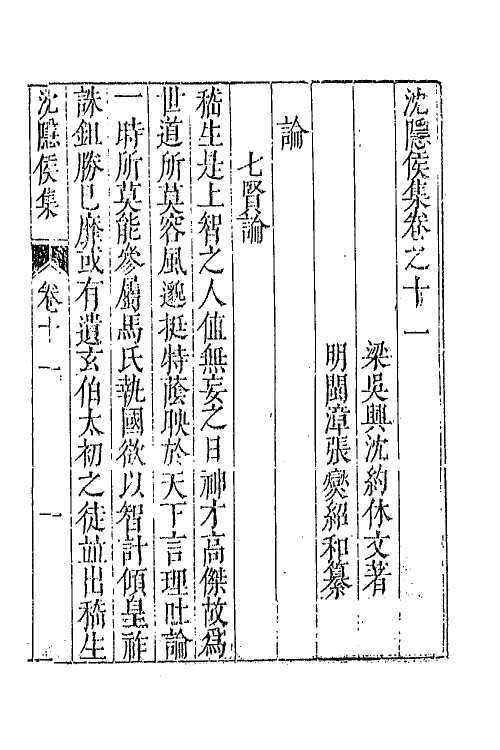 沈隱侯集卷之十一
梁吳興沈約休文著
明閩漳張燮紹和纂
論
七賢論
嵇生是上智之人值無妄之日神才高傑故為
世道所莫容風邈挺特蔭映於天下言理吐論
一時所莫能參屬馬氏執國欲以智計傾皇祚
誅鉏勝已靡或有遺玄伯太初之徒並出嵇生
沈隱侯集 卷十一 一